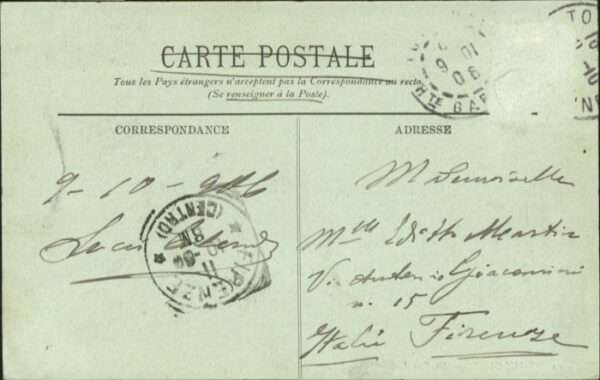 CARTE POSTALE
Tous les Pays étrangers n'acceptent pas la Correspondance au recto
(Se renseigner à la Poste).
CORRESPONDANCE
ADRESSE
9-10-906
FIRENZE
(CENTRO)
11
8M
Hte GAR
Mademoiselle
Mlle Edith Martin
Via Antonio Giacomini
n. 15
Italie Firenze